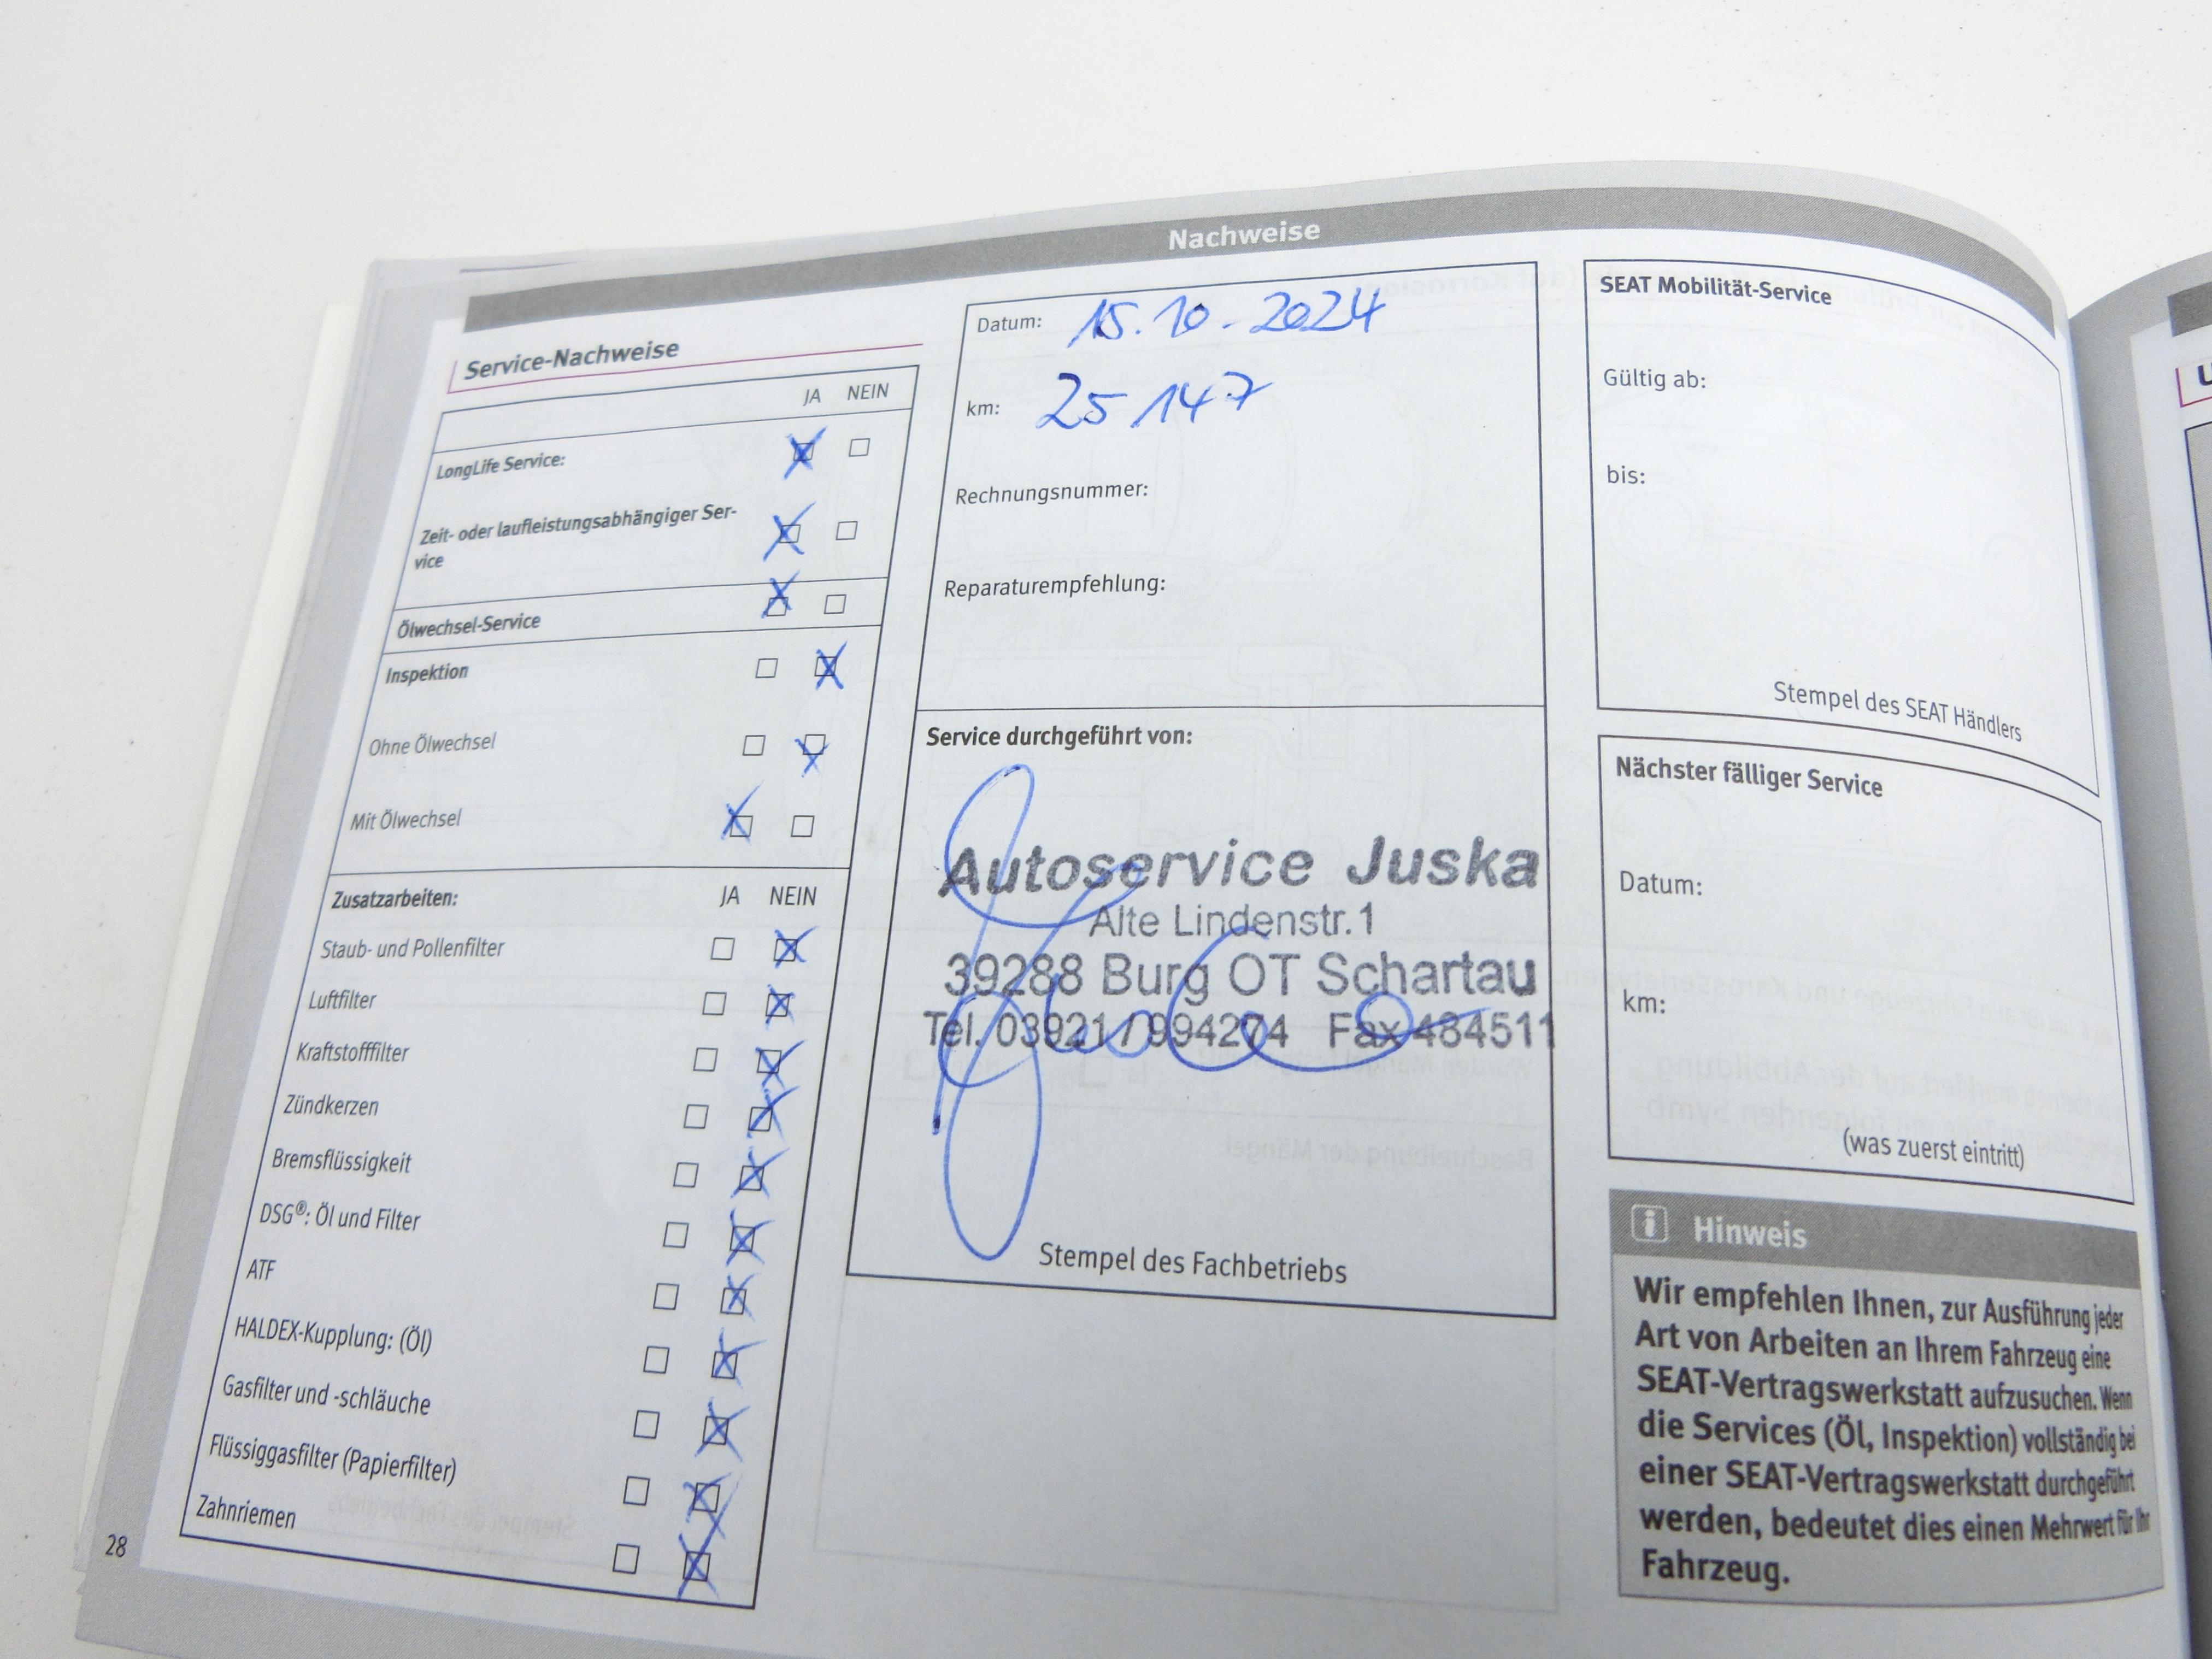 Nachweise
Service-Nachweise
JA NEIN
LongLife Service:
Zeit- oder laufleistungsabhängiger Ser-
vice
Ölwechsel-Service
Inspektion
Ohne Ölwechsel
Mit Ölwechsel
Zusatzarbeiten: JA NEIN
Staub- und Pollenfilter
Luftfilter
Kraftstofffilter
Zündkerzen
Bremsflüssigkeit
DSG®: Öl und Filter
ATF
HALDEX-Kupplung: (Öl)
Gasfilter und -schläuche
Flüssiggasfilter (Papierfilter)
Zahnriemen
28
Datum: 15.10.2024
km: 25147
Rechnungsnummer:
Reparaturempfehlung:
Service durchgeführt von:
Autoservice Juska
Alte Lindenstr.1
39288 Burg OT Schartau
Tel. 03921/994274 Fax 484511
Stempel des Fachbetriebs
SEAT Mobilität-Service
Gültig ab:
bis:
Stempel des SEAT Händlers
Nächster fälliger Service
Datum:
km:
(was zuerst eintritt)
Hinweis
Wir empfehlen Ihnen, zur Ausführung jeder
Art von Arbeiten an Ihrem Fahrzeug eine
SEAT-Vertragswerkstatt aufzusuchen. Wenn
die Services (Öl, Inspektion) vollständig bei
einer SEAT-Vertragswerkstatt durchgeführt
werden, bedeutet dies einen Mehrwert für Ihr
Fahrzeug.